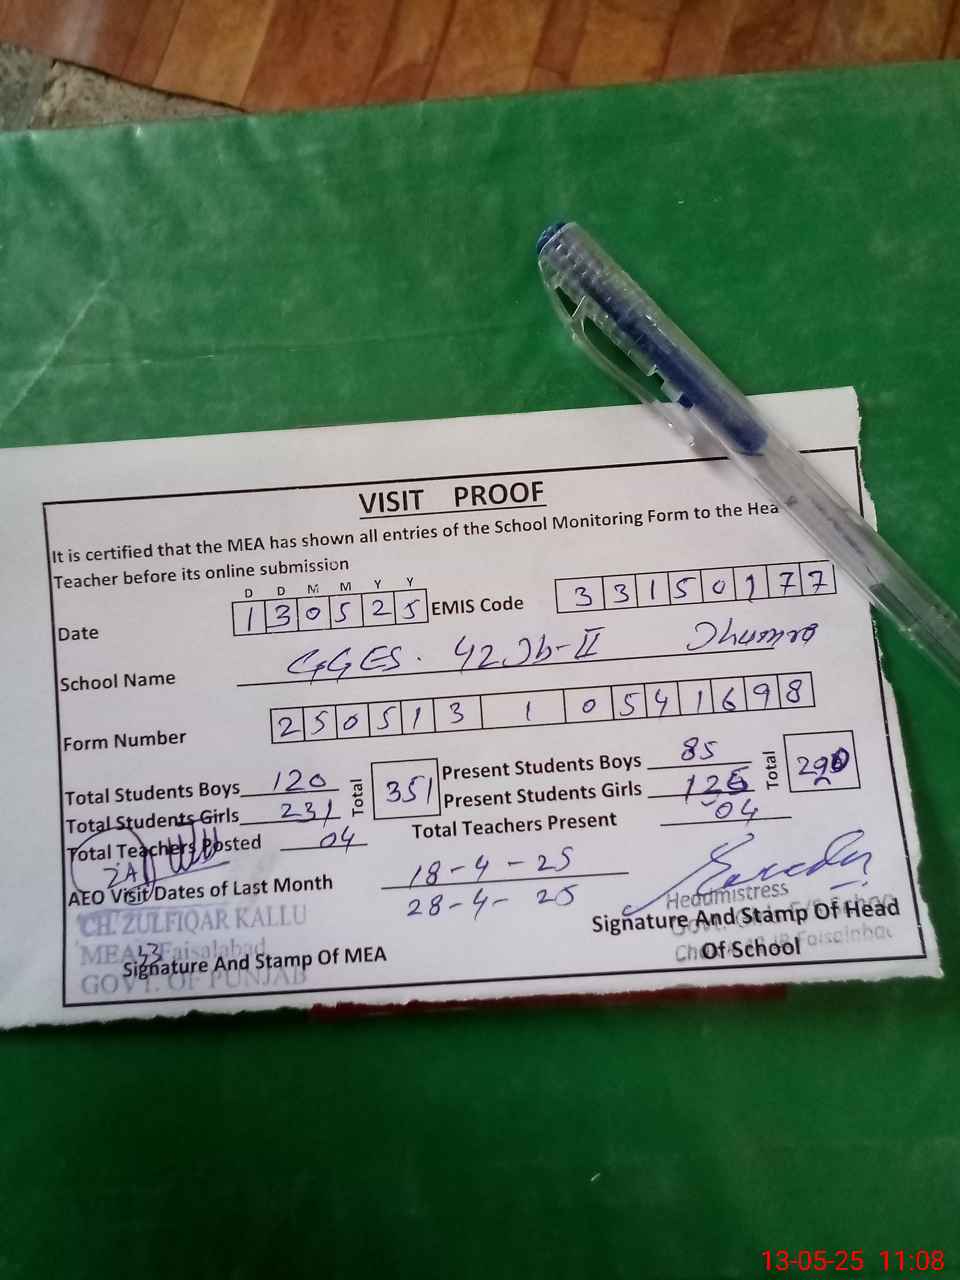 VISIT PROOF
It is certified that the MEA has shown all entries of the School Monitoring Form to the Hea
Teacher before its online submission
D D M M Y Y
Date 1 3 0 5 2 5 EMIS Code 3 3 1 5 0 1 7 7
School Name GGES. 42 Jb-II Jhumra
Form Number 2 5 0 5 1 3 1 0 5 4 1 6 9 8
Total Students Boys 120 Total 351 Present Students Boys 85 Total
Total Students Girls 231 Present Students Girls
Total Teachers Posted 04 Total Teachers Present 04
AEO Visit Dates of Last Month 18-4-25
28-4-25
CH. ZULFIQAR KALLU
MEA 43 Faisalabad
GOVT. OF PUNJAB
Signature And Stamp Of MEA
Headmistress
Signature And Stamp Of Head
Of School
13-05-25 11:08